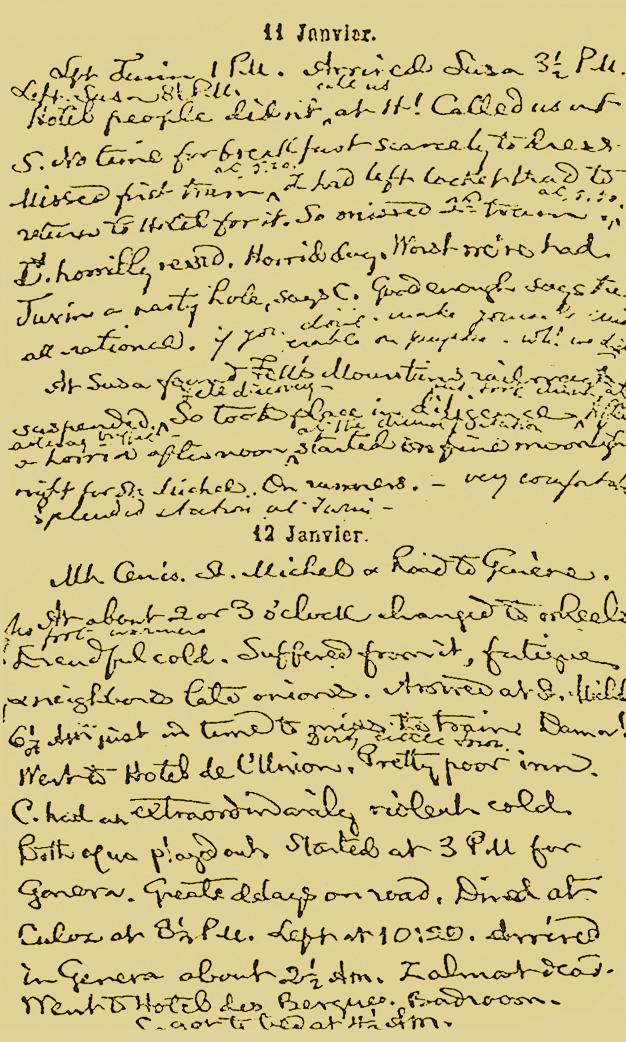 11 Janvier.
Left Turin 1 P.M. Arrived Susa 3½ P.M.
Left Susa 8½ P.M.
call us
Hotel people didn't at 4! Called us at
5. No time for breakfast scarcely to dress.
at 5.20.
Missed first train I had left locket & had to
at, 5.50.
return to Hotel for it. So missed 2nd train
horribly vexed. Horrid day. Worst we've had.
Turin a nasty hole, says C. Good enough says
all rational. if you don't make yourself
on purpose
At Susa found Fell's Mountain railway
suspended. So took place in diligence
a horrid afternoon started on fine moonlight
night for St. Michel. On runners. – very comfortable
splendid station at Turin –
12 Janvier.
Mt. Cenis. St. Michel & Road to Genève.
At about 2 or 3 o'clock changed to wheels
No foot warmers
Dreadful cold. Suffered from it, fatigue
& neighbors late onions. Arrived at St. Michel
6½ AM just in time to miss the train. Damn!
Dirty little room.
Went to Hotel de L'Union. Pretty poor inn.
C. had an extraordinarily violent cold.
Both of us played out. Started at 3 P.M for
Geneva. Greatest delays on road. Dined at
Culoz at 8½ P.M. Left at 10:20. Arrived
in Geneva about 2½ AM. Z almost dead.
Went to Hotel des Bergues. Bad room.
C. got to bed at 4½ AM.